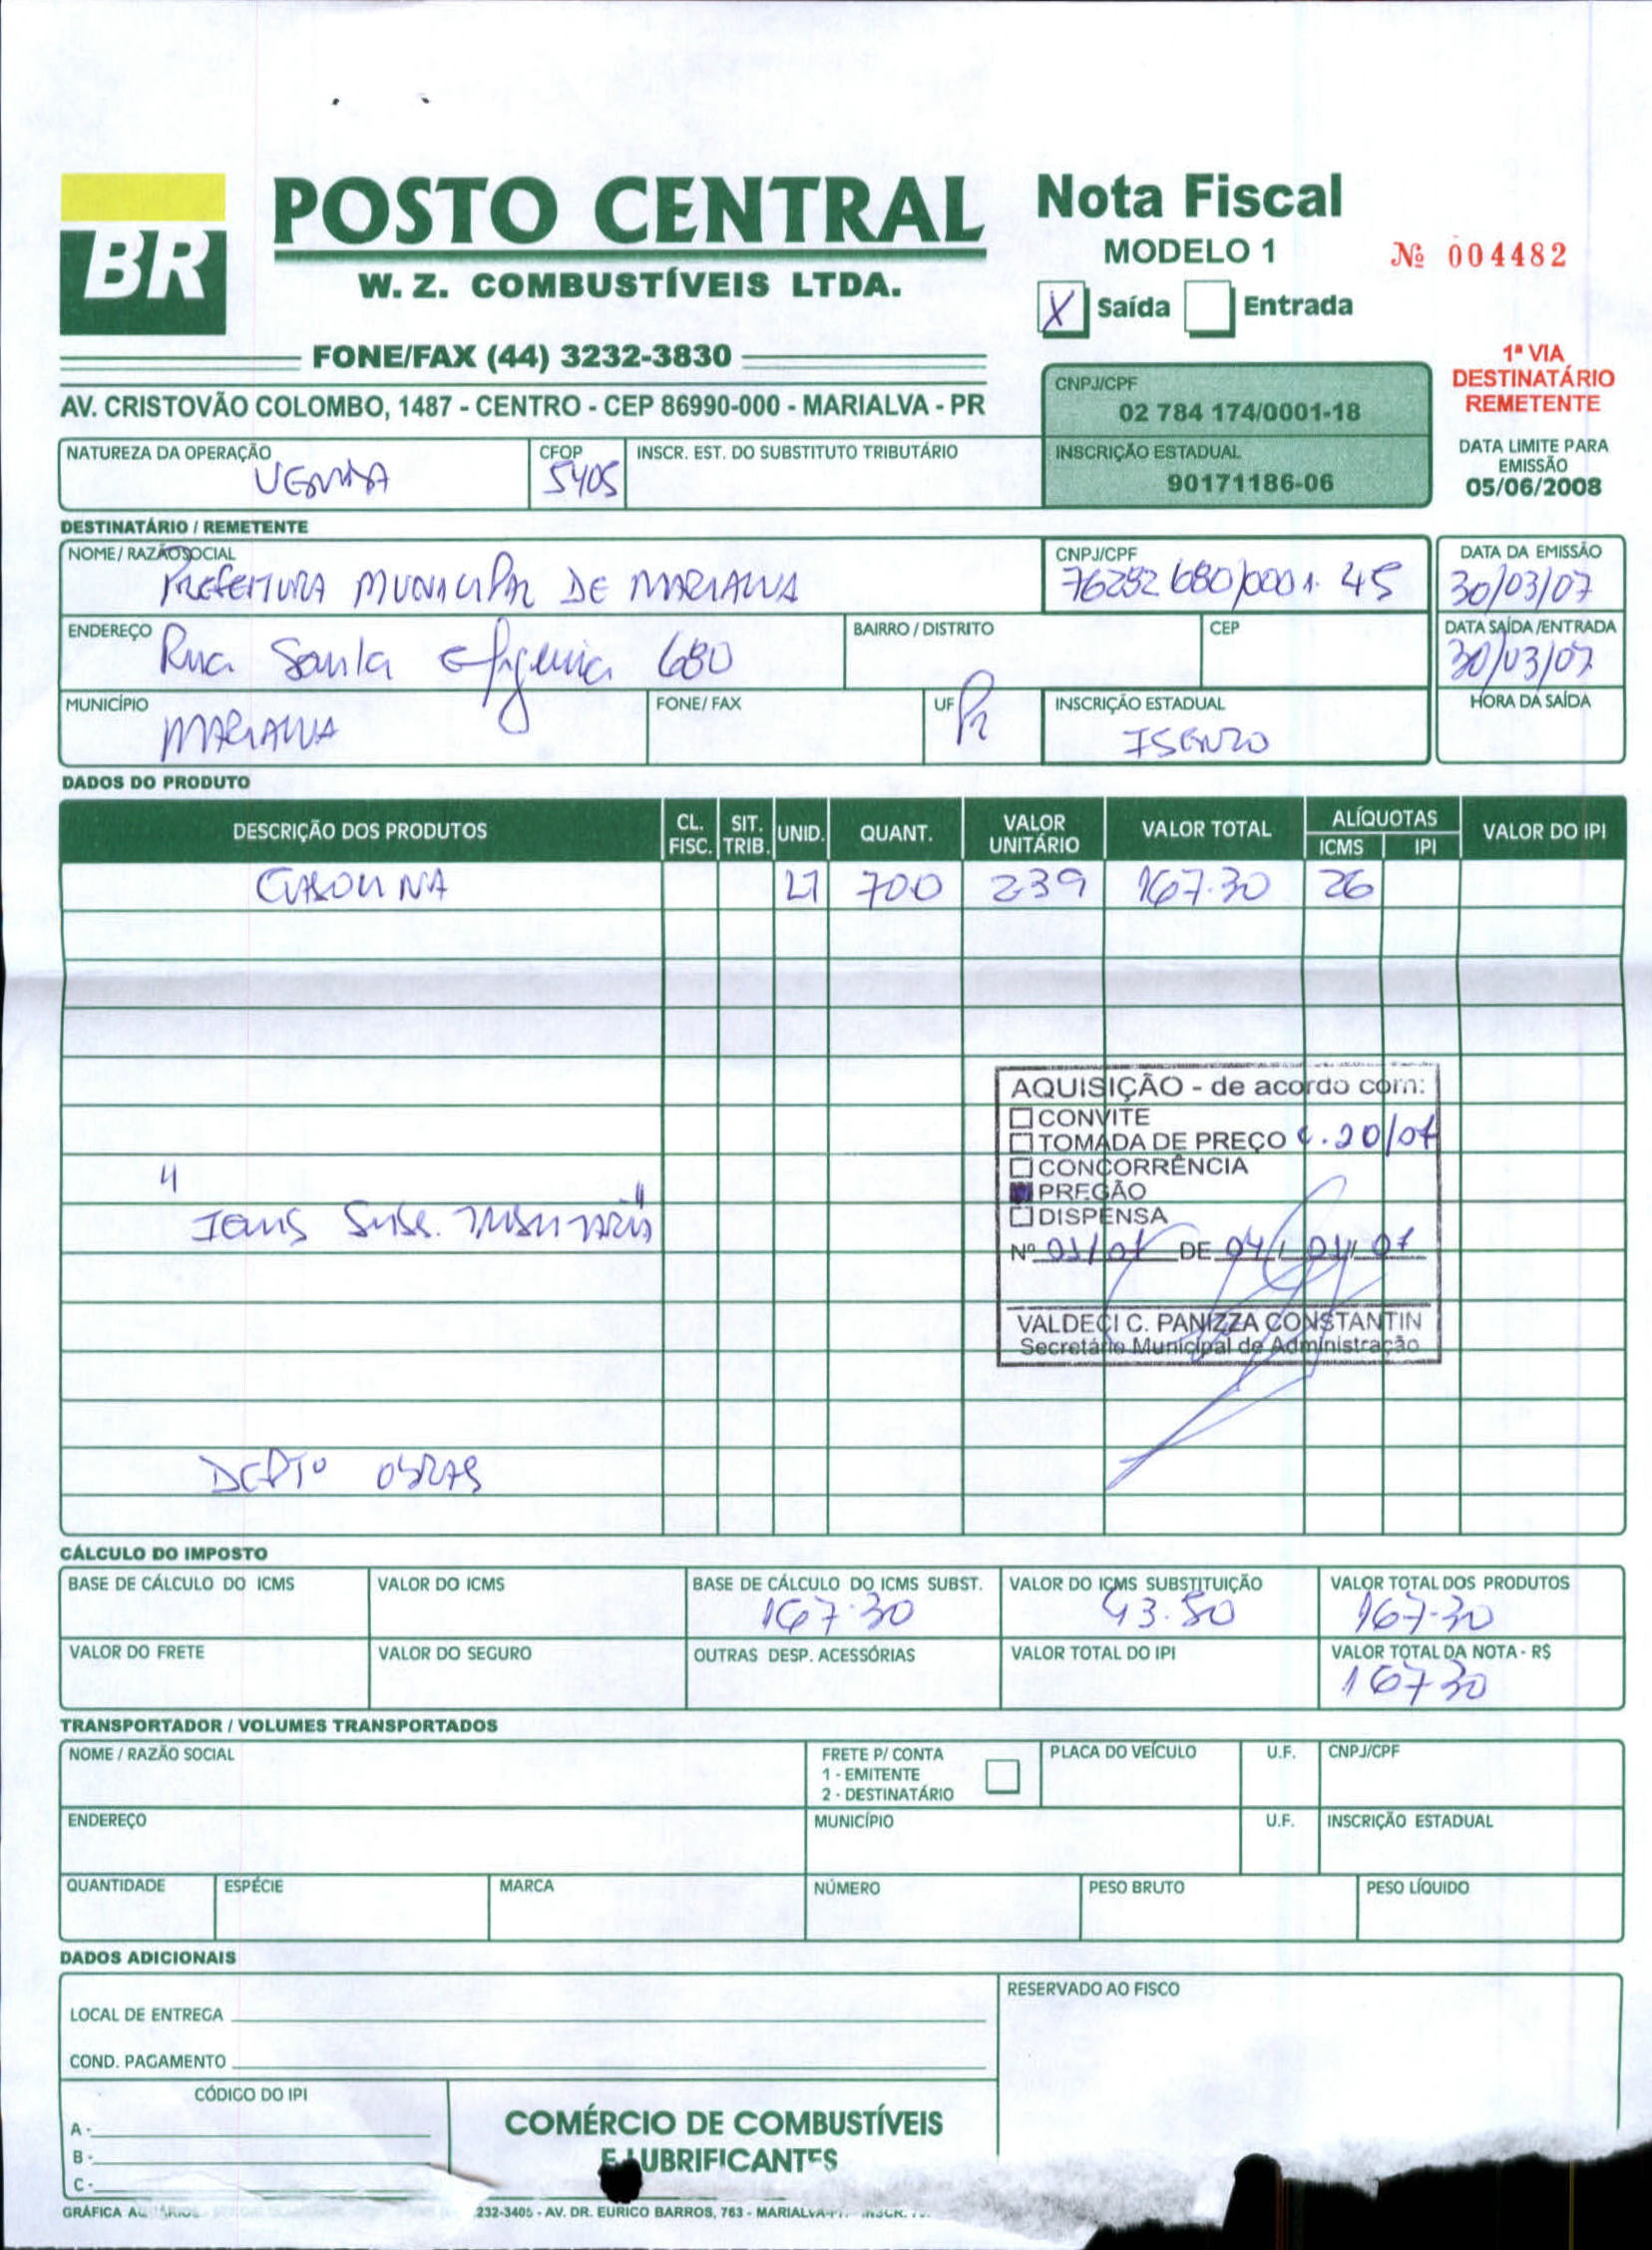 BR
POSTO CENTRAL
W. Z. COMBUSTÍVEIS LTDA.
FONE/FAX (44) 3232-3830
AV. CRISTOVÃO COLOMBO, 1487 - CENTRO - CEP 86990-000 - MARIALVA - PR
Nota Fiscal
MODELO 1
Nº 004482
X Saída Entrada
1ª VIA
DESTINATÁRIO
REMETENTE
CNPJ/CPF
02 784 174/0001-18
INSCRIÇÃO ESTADUAL
90171186-06
DATA LIMITE PARA
EMISSÃO
05/06/2008
NATUREZA DA OPERAÇÃO CFOP INSCR. EST. DO SUBSTITUTO TRIBUTÁRIO
VENDA 5405
DESTINATÁRIO / REMETENTE
NOME / RAZÃO SOCIAL CNPJ/CPF DATA DA EMISSÃO
PREFEITURA MUNICIPAL DE MARIALVA 76282680/0001-45 30/03/07
ENDEREÇO BAIRRO / DISTRITO CEP DATA SAÍDA/ENTRADA
Rua Santa Efigenia 680 30/03/07
MUNICÍPIO FONE/ FAX UF INSCRIÇÃO ESTADUAL HORA DA SAÍDA
MARIALVA Pr ISENTO
DADOS DO PRODUTO
DESCRIÇÃO DOS PRODUTOS CL. FISC. SIT. TRIB. UNID. QUANT. VALOR UNITÁRIO VALOR TOTAL ALÍQUOTAS ICMS IPI VALOR DO IPI
GASOLINA LT 700 239 167.30 26
AQUISIÇÃO - de acordo com:
CONVITE
TOMADA DE PREÇO 20/07
CONCORRÊNCIA
PREGÃO
DISPENSA
Nº 01/07 DE 04/01/07
VALDECI C. PANIZZA CONSTANTIN
Secretário Municipal de Administração
" Icms Subs. TRIBUTARIA "
DEPTO OBRAS
CÁLCULO DO IMPOSTO
BASE DE CÁLCULO DO ICMS VALOR DO ICMS BASE DE CÁLCULO DO ICMS SUBST. VALOR DO ICMS SUBSTITUIÇÃO VALOR TOTAL DOS PRODUTOS
167.30 43.50 167-30
VALOR DO FRETE VALOR DO SEGURO OUTRAS DESP. ACESSÓRIAS VALOR TOTAL DO IPI VALOR TOTAL DA NOTA - R$
167 30
TRANSPORTADOR / VOLUMES TRANSPORTADOS
NOME / RAZÃO SOCIAL FRETE P/ CONTA PLACA DO VEÍCULO U.F. CNPJ/CPF
1 - EMITENTE
2 - DESTINATÁRIO
ENDEREÇO MUNICÍPIO U.F. INSCRIÇÃO ESTADUAL
QUANTIDADE ESPÉCIE MARCA NÚMERO PESO BRUTO PESO LÍQUIDO
DADOS ADICIONAIS
RESERVADO AO FISCO
LOCAL DE ENTREGA
COND. PAGAMENTO
CÓDIGO DO IPI
A -
B -
C -
COMÉRCIO DE COMBUSTÍVEIS
E LUBRIFICANTES
GRÁFICA 232-3405 - AV. DR. EURICO BARROS, 763 - MARIALVA